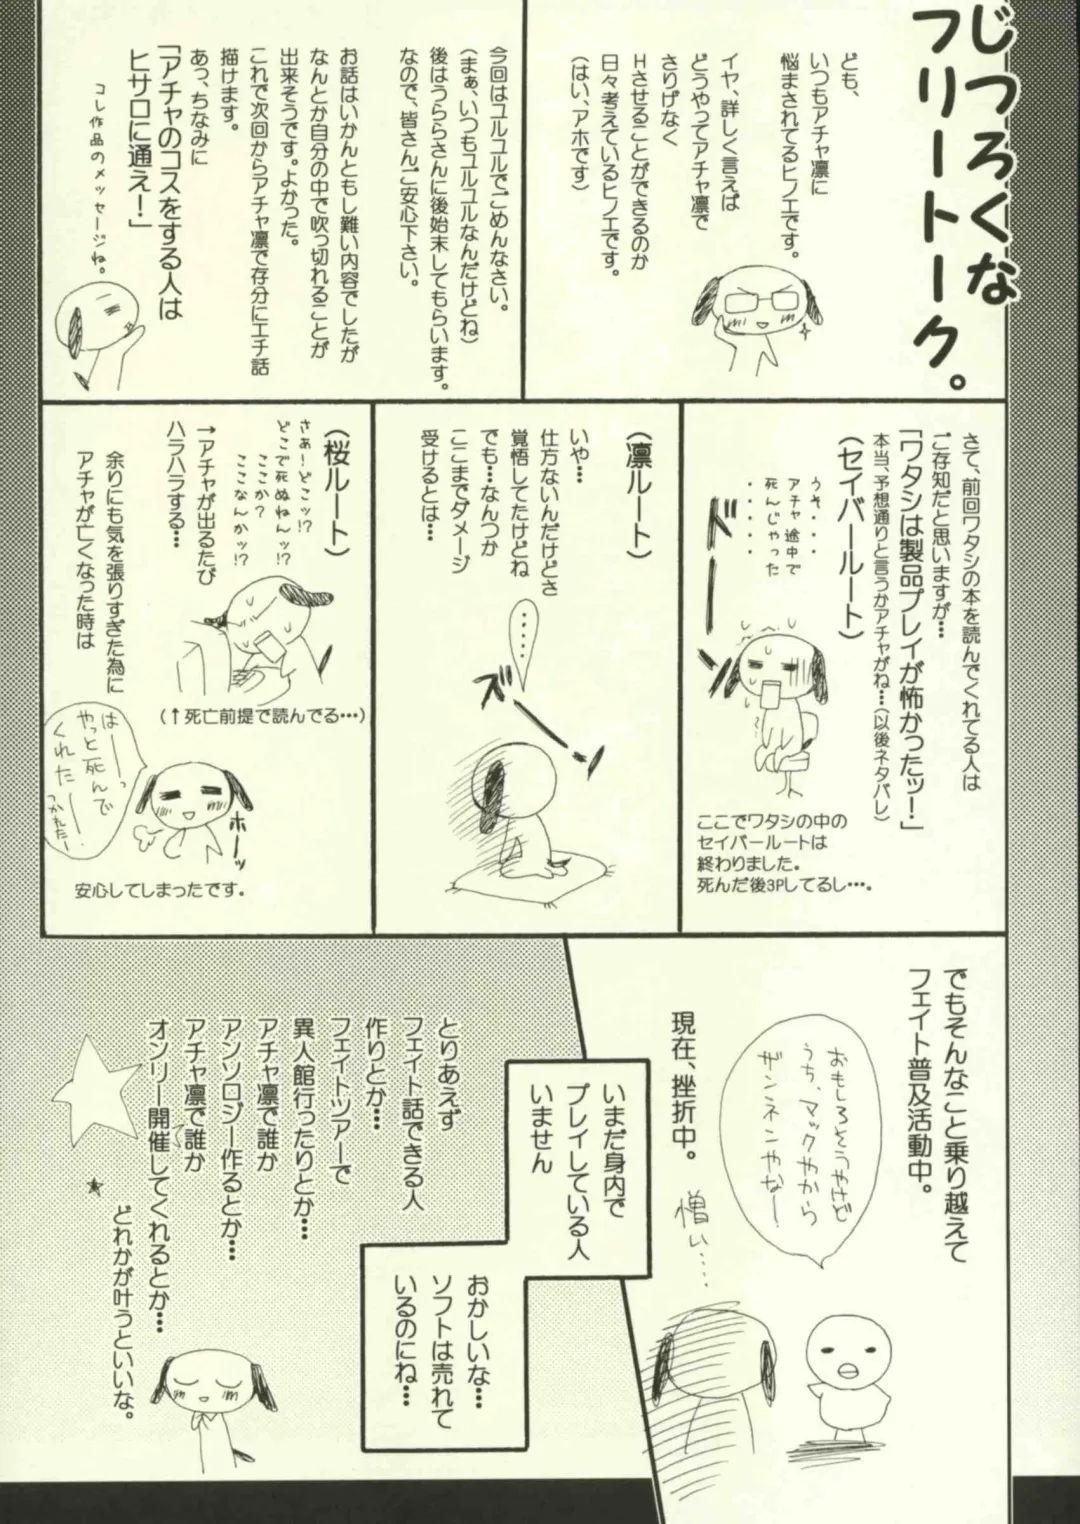 じつろくな
フリートーク。
ども、
いつもアチャ凛に
悩まされてるヒノエです。
イヤ、詳しく言えば
どうやってアチャ凛で
さりげなく
Hさせることができるのか
日々考えているヒノエです。
(はい、アホです)
今回はユルユルでごめんなさい。
(まぁ、いつもユルユルなんだけどね)
後はうららさんに後始末してもらいます。
なので、皆さんご安心下さい。
お話はいかんともし難い内容でしたが
なんとか自分の中で吹っ切れることが
出来そうです。よかった。
これで次回からアチャ凛で存分にエチ話
描けます。
あっ、ちなみに
「アチャのコスをする人は
ヒサロに通え!」
コレ作品のメッセージね。
さて、前回ワタシの本を読んでくれてる人は
ご存知だと思いますが…
「ワタシは製品プレイが怖かったッ!」
本当、予想通りと言うかアチャがね…(以後ネタバレ)
(セイバールート)
うそ・・・・
アチャ途中で
死んじゃった
・・・・・
ドーーン
ここでワタシの中の
セイバールートは
終わりました。
死んだ後3Pしてるし…。
(凛ルート)
いや…
仕方ないんだけどさ
覚悟してたけどね
でも…なんつか
ここまでダメージ
受けるとは…
・・・・・
ズーーン
(桜ルート)
さあーどこッ!?
どこで死ぬねんッ!?
ここか?
ここなんかッ!?
→アチャが出るたび
ハラハラする…
(↑死亡前提で読んでる…)
余りにも気を張りすぎた為に
アチャが亡くなった時は
はーーっ
やっと死んで
くれたーー
つかれたー
ホーッ
安心してしまったです。
でもそんなこと乗り越えて
フェイト普及活動中。
おもしろそうやけど
うち、マックやから
ザンネンやなー!
現在、挫折中。
憎い・・・・
いまだ身内で
プレイしている人
いません
おかしいな…
ソフトは売れて
いるのにね…
とりあえず
フェイト話できる人
作りとか…
フェイトツアーで
異人館行ったりとか…
アチャ凛で誰か
アンソロジー作るとか…
アチャ凛で誰か
オンリー開催してくれるとか…
どれかが叶うといいな。